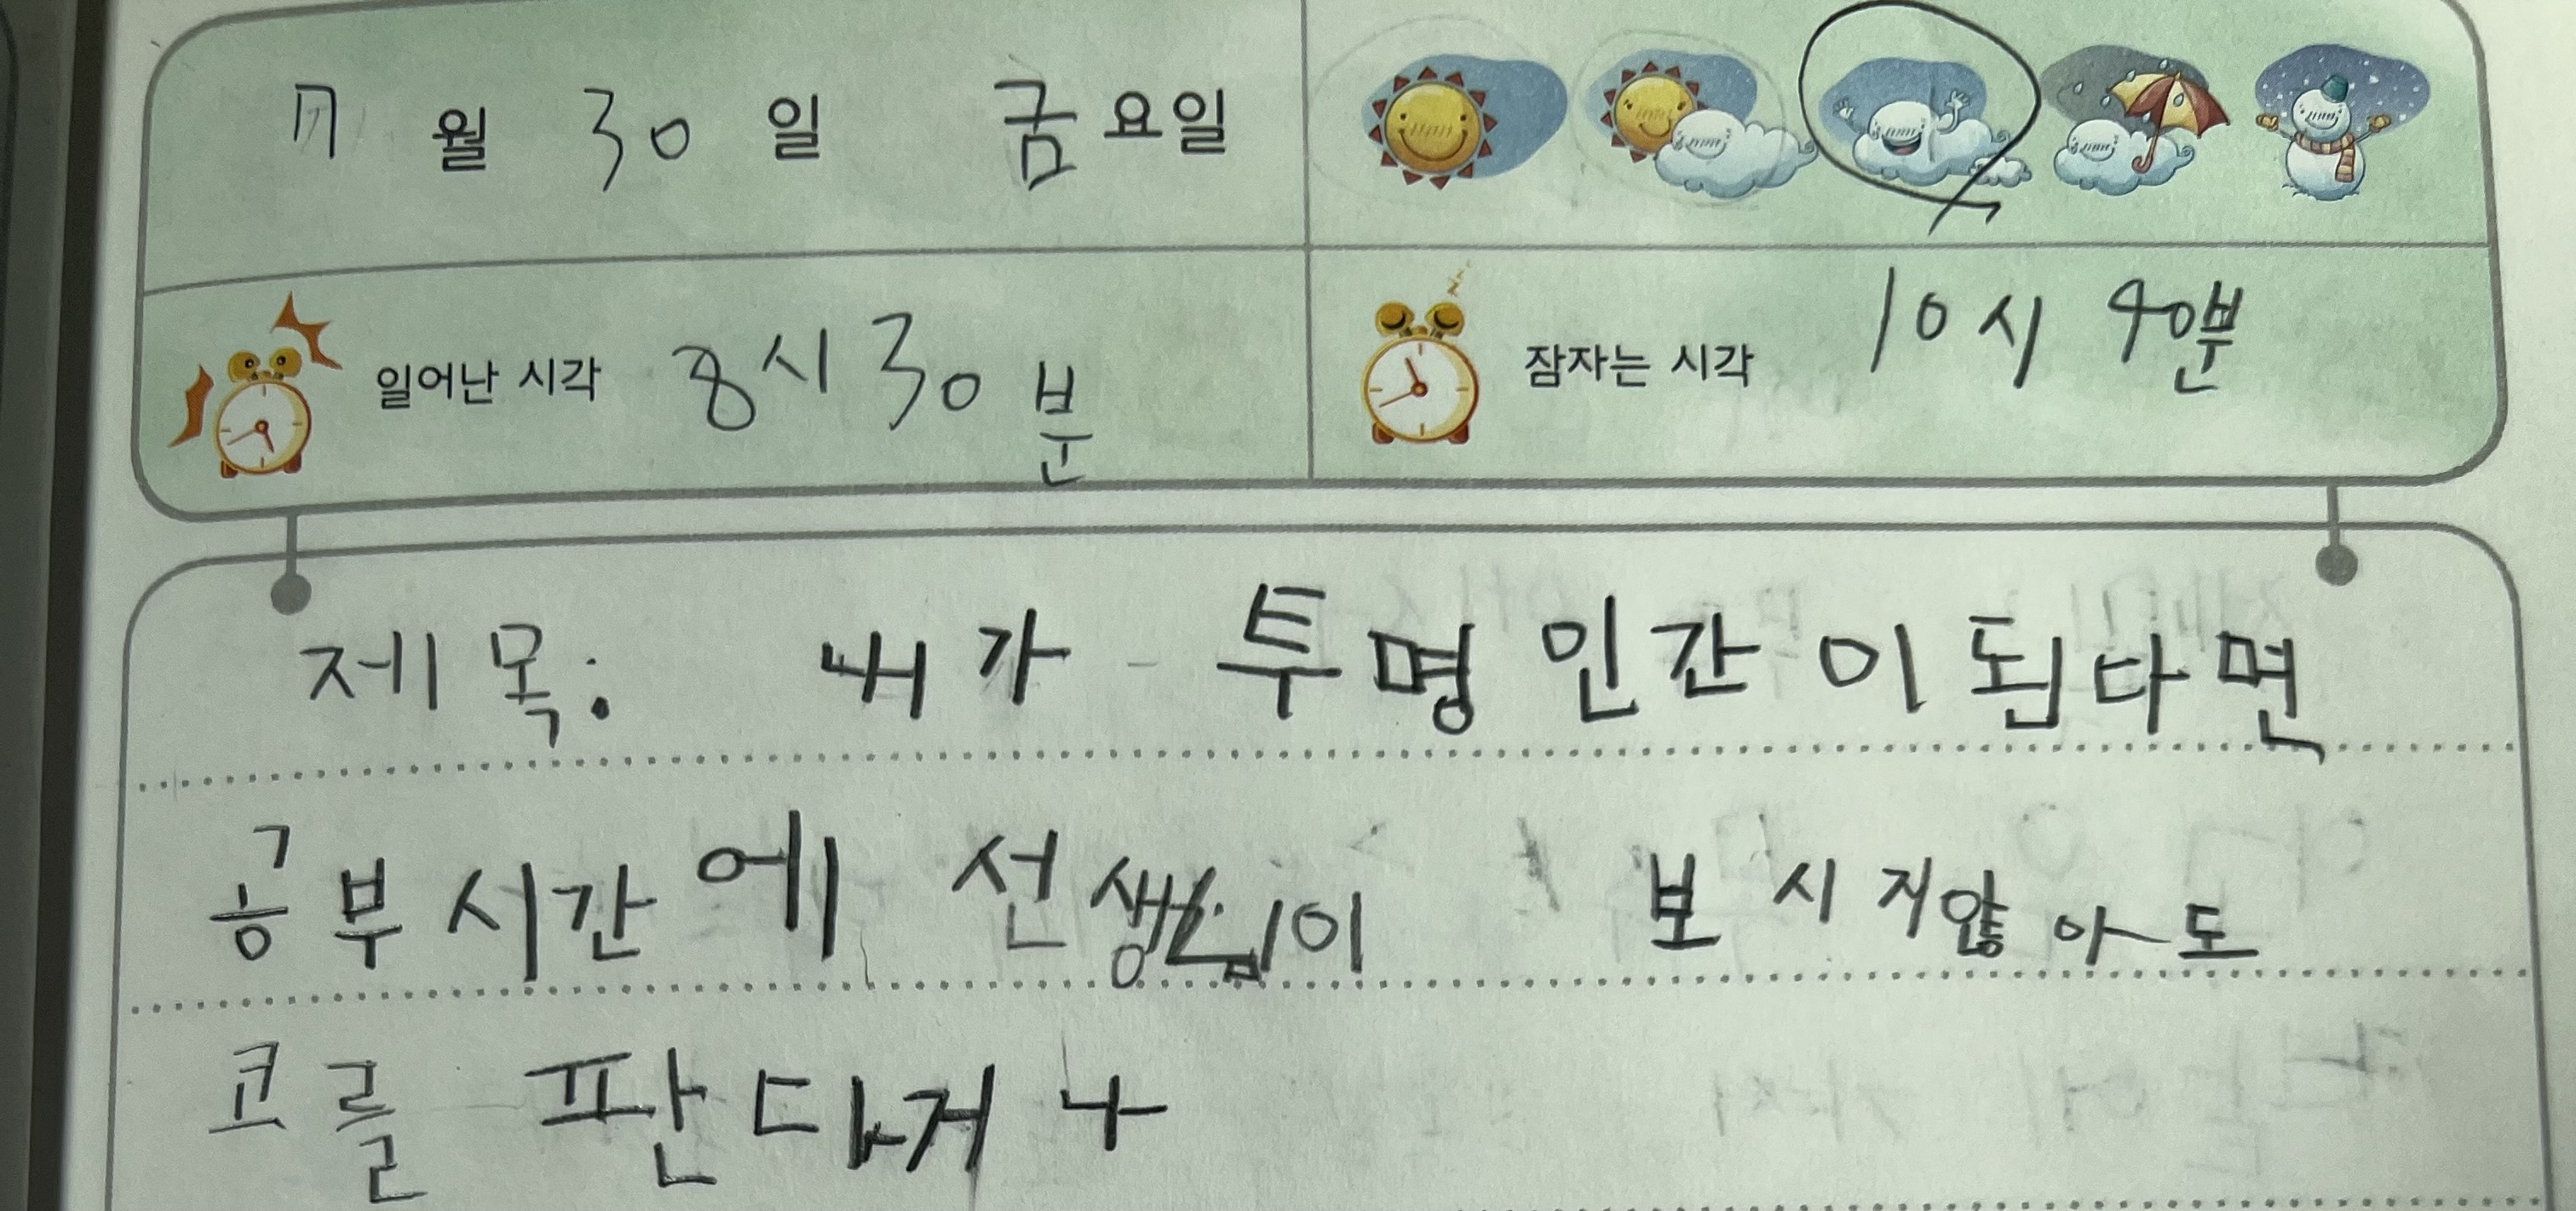 7월 30일 금요일
일어난 시각 8시 30분
잠자는 시각 10시 40분
제목: 내가 투명인간이 된다면
공부시간에 선생님이 보시지않아도
코를 판다거나